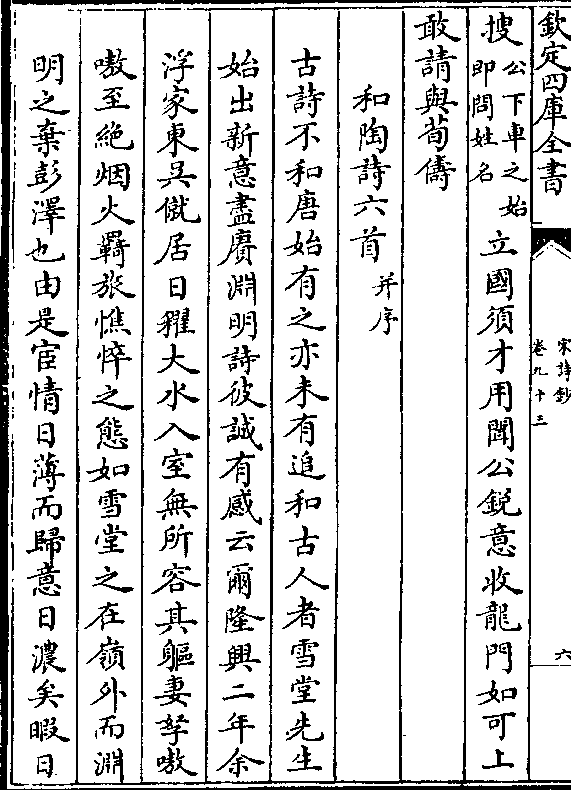 欽定四庫全書
宋詩鈔
卷九十三
六
搜公下車之始即問姓名立國須才用聞公銳意收龍門如可上
敢請與荀儔
和陶詩六首并序
古詩不和唐始有之亦未有追和古人者雪堂先生
始出新意盡賡淵明詩彼誠有感云爾隆興二年余
浮家東吳僦居日糴大水入室無所容其軀妻孥嗷
嗷至絶烟火羇旅憔悴之態如雪堂之在嶺外而淵
明之棄彭澤也由是宦情日薄而歸意日濃矣暇日